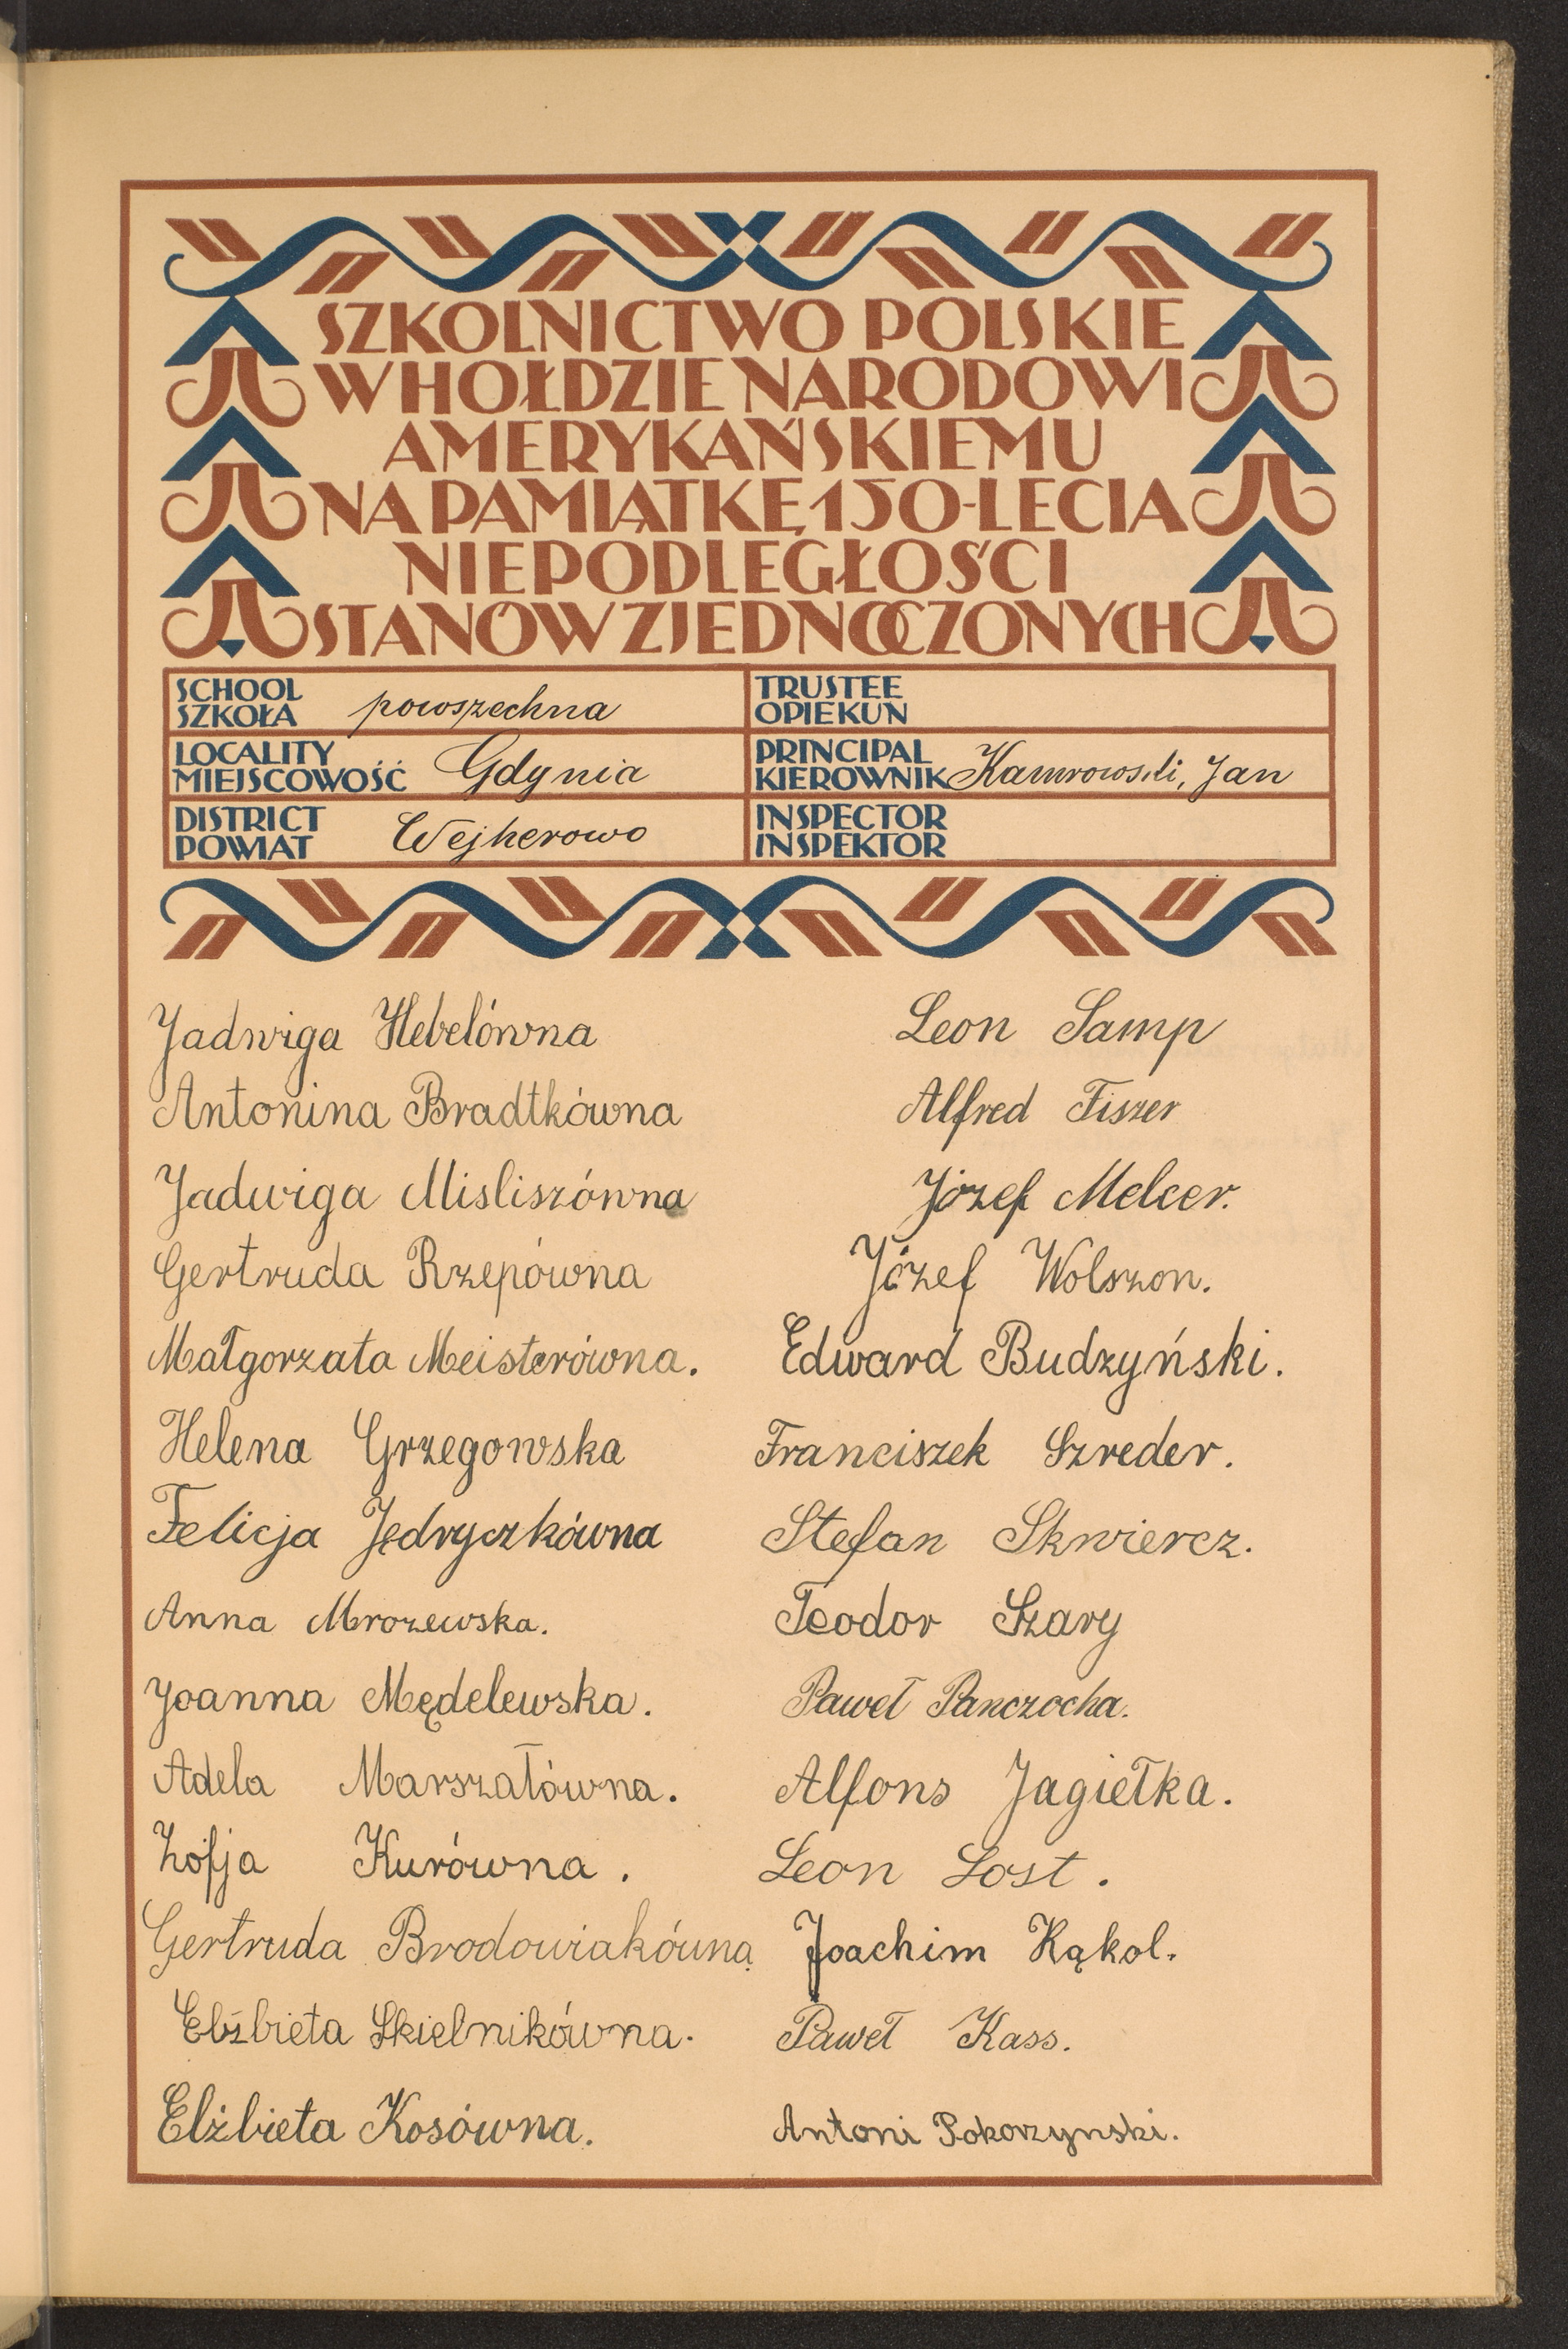 SZKOLNICTWO POLSKIE
W HOŁDZIE NARODOWI
AMERYKAŃSKIEMU
NA PAMIĄTKĘ 150-LECIA
NIEPODLEGŁOŚCI
STANÓW ZJEDNOCZONYCH
SCHOOL
SZKOŁA powszechna
TRUSTEE
OPIEKUN
LOCALITY
MIEJSCOWOŚĆ Gdynia
PRINCIPAL
KIEROWNIK Kamrowski, Jan
DISTRICT
POWIAT Wejherowo
INSPECTOR
INSPEKTOR
Jadwiga Hebelówna
Antonina Bradtkówna
Jadwiga Misliszówna
Gertruda Rzepówna
Małgorzata Meisterówna.
Helena Grzegowska
Felicja Jędryczkówna
Anna Mrozewska.
Joanna Mędelewska.
Adela Marszałówna.
Zofja Kurówna.
Gertruda Brodowiakówna.
Elżbieta Skielnikówna.
Elżbieta Kosówna.
Leon Samp
Alfred Fiszer
Józef Melcer.
Józef Wolszon.
Edward Budzyński.
Franciszek Szreder.
Stefan Skwiercz.
Teodor Szary
Paweł Panczocha.
Alfons Jagiełka.
Leon Lost.
Joachim Kąkol.
Paweł Kass.
Antoni Pokorzynski.